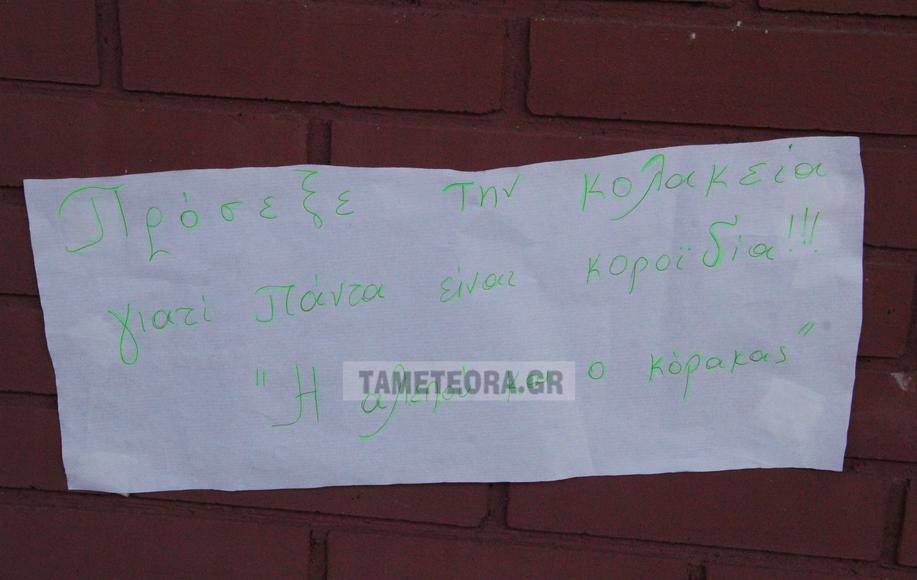 Πρόσεξε την κολακεία
γιατί πάντα είναι κοροϊδία!!!
"Η αλεπού και ο κόρακας"
TAMETEORA.GR